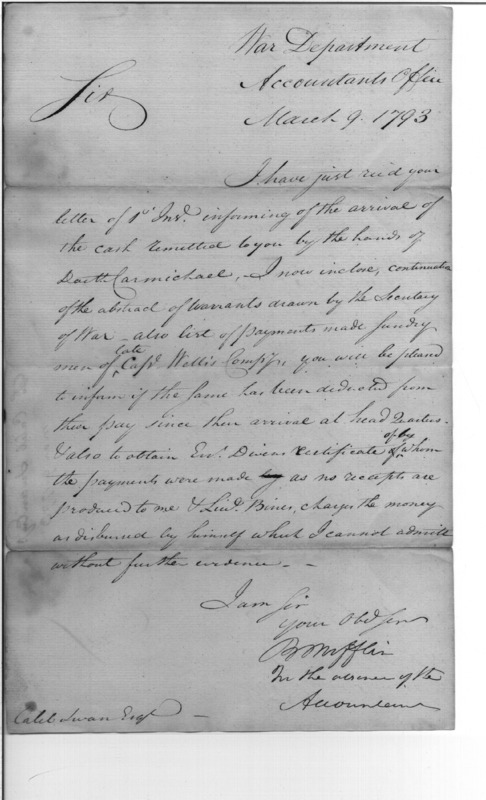 War Department
Accountants Office
March 9. 1793
Sir
I have just rec'd your
letter of 1st Inst. informing of the arrival of
the cash remitted to you by the hands of
Doctr Carmichael, I now inclose, continuation
of the abstract of Warrants drawn by the Secretary
of War - also list of payments made sundry
late
men of Capt. Willis Compy, you will be pleased
to inform if the same has been deducted from
their pay since their arrival at head Quarters
& also to obtain Ens. Divens Certificate of by whom
the payments were made as no receipts are
produced to me & Lieut. Bines, charges the money
as disbursed by himself which I cannot admitt
without further evidence -
I am Sir
your Obd Serv
B Mifflin
In the absence of the
Accountant
Caleb Swan Esqr